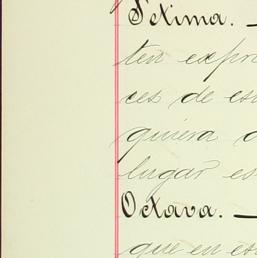 Setima. —
ten expre
ces de es
quiera
lugar es
Octava. —
que en es